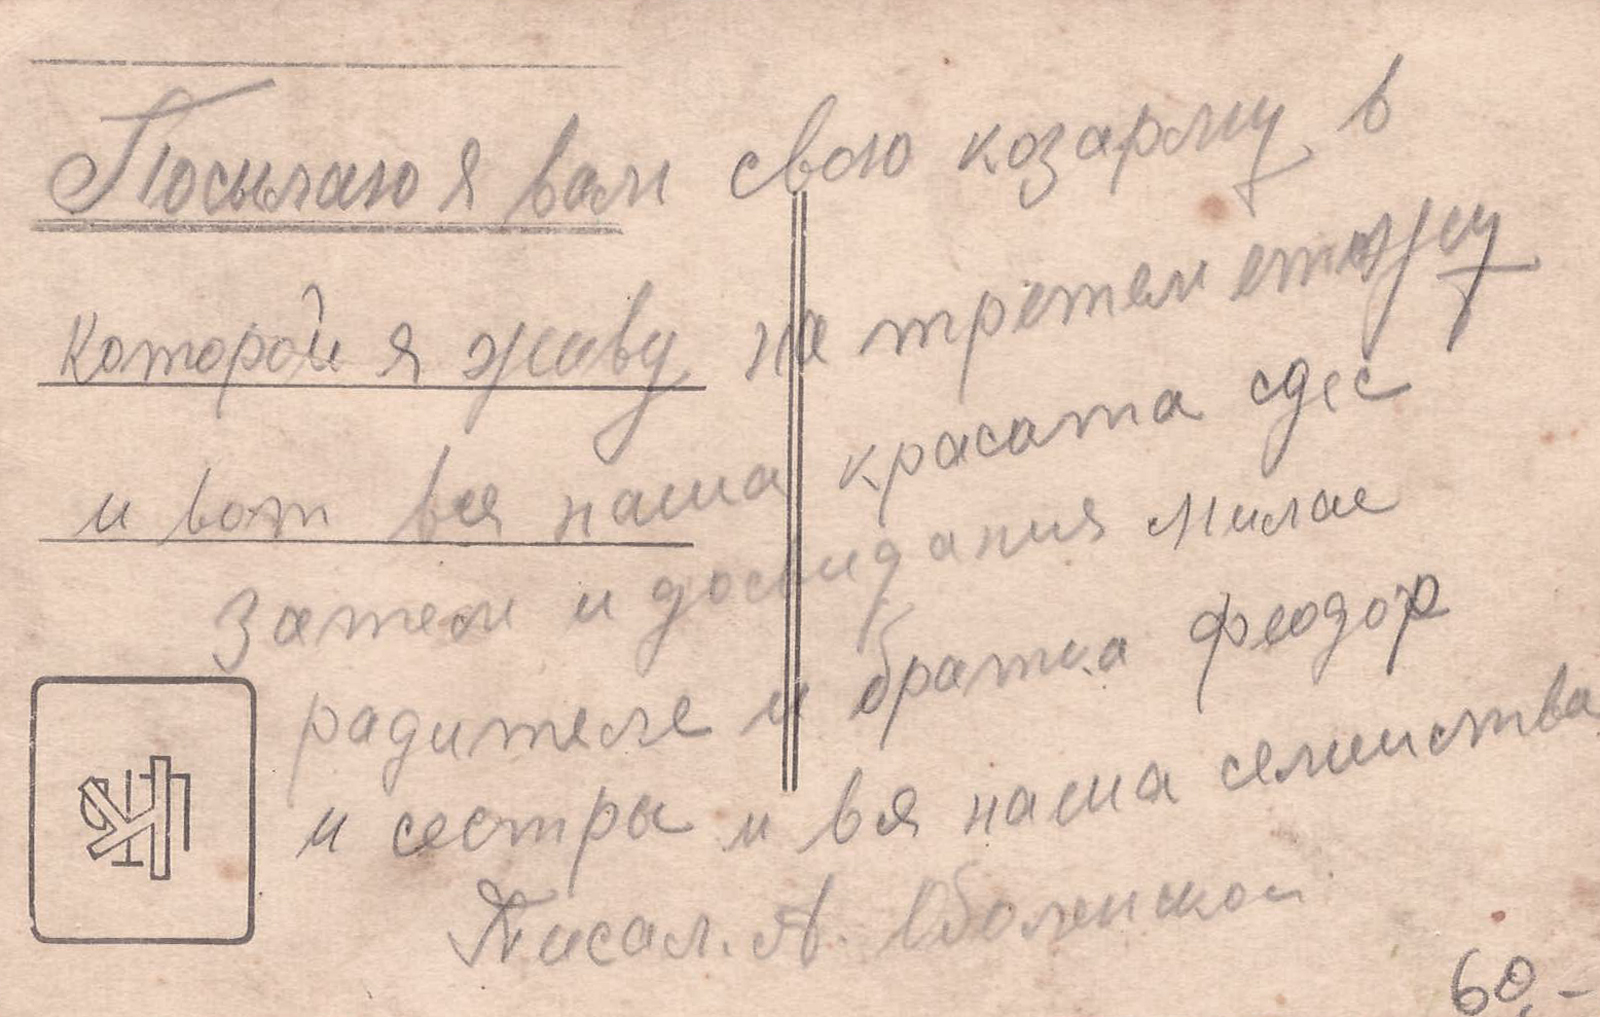 Посылаю я вам свою козарму в
которой я живу на третем етажу
и вот вся наша красата сдес
затем и досвидания милае
радителе и братка феодор
и сестры и вя наша семиства
Писал. А.
60,-